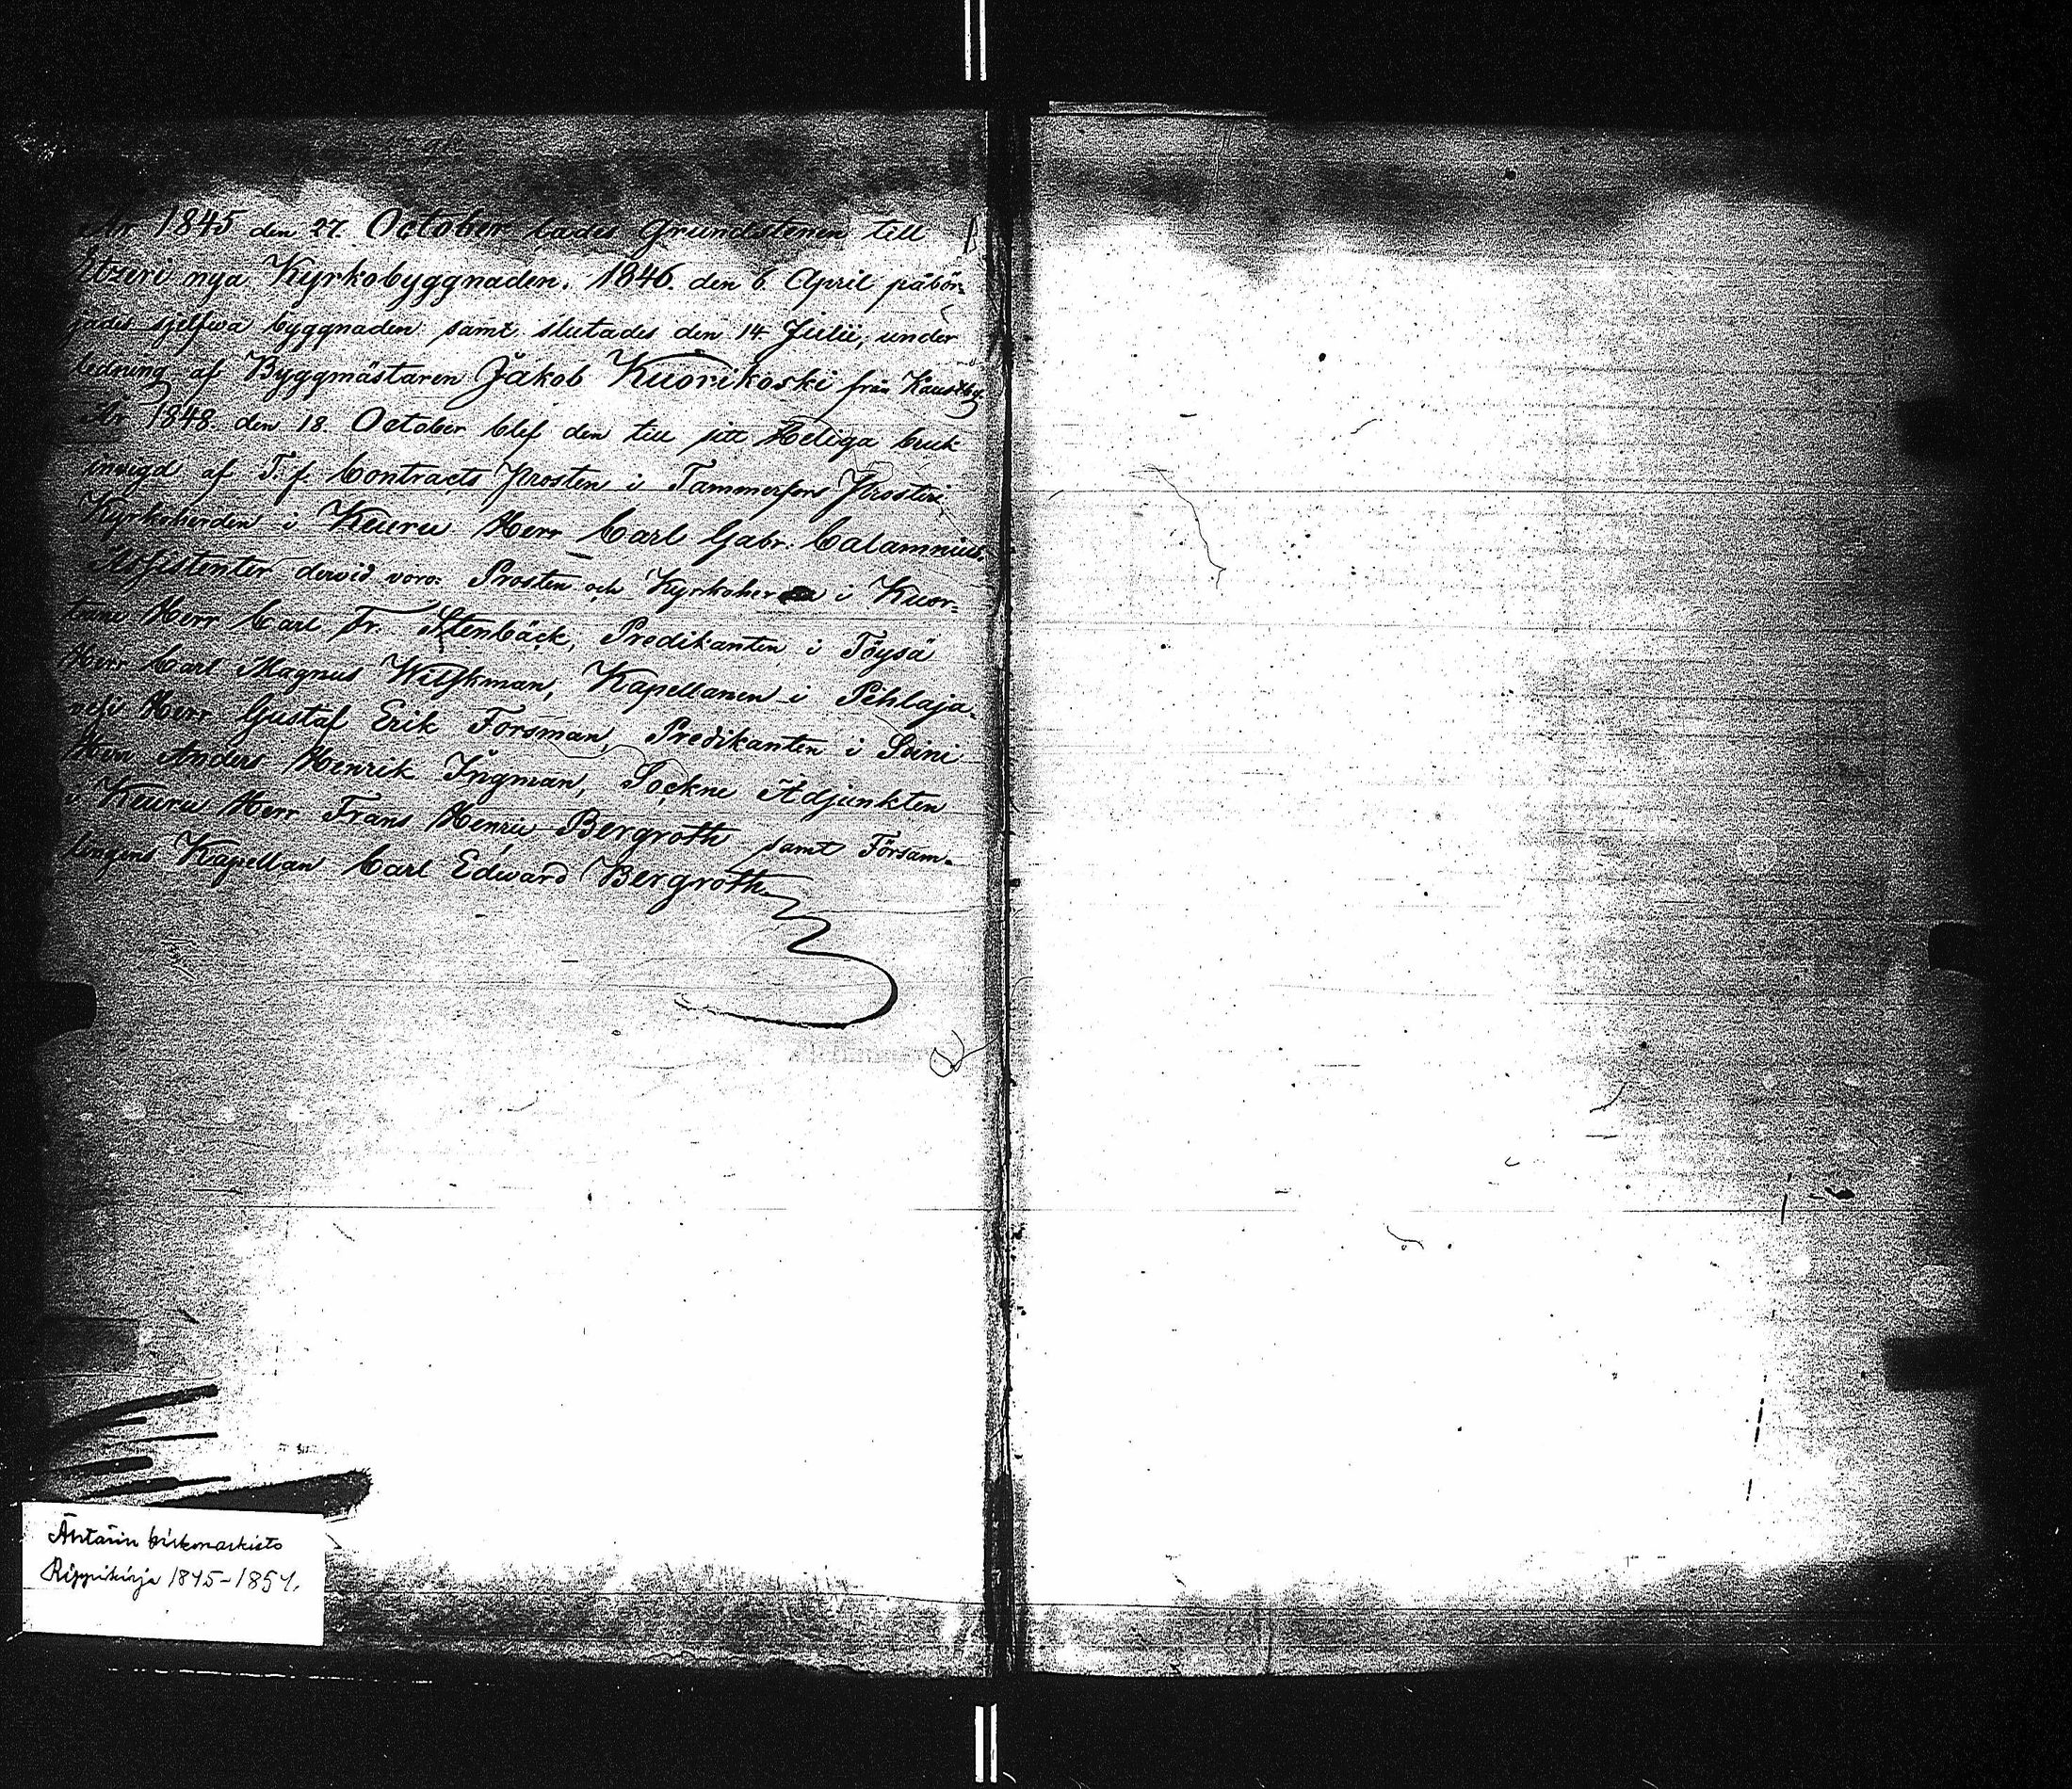 År 1845 den 27. October lades Grundstenen till
Etzeri nya Kyrkobyggnaden. 1846. den 6. April påbör-
jades sjelfwa byggnaden samt slutades den 14 Julii, under
ledning af Byggmästaren Jakob Kuorikoski från Kaustby.
År 1848. den 18. October blef den till sitt Heliga bruk
invigd af T. f. Contracts Prosten i Tammerfors Prosteri,
Kyrkoherden i Keuru Herr Carl Gabr. Calamnius.
Assistenter dervid voro: Prosten och Kyrkoher i Kuor-
tane Herr Carl Fr. Stenbäck, Predikanten i Töysä
Herr Carl Magnus Willkman, Kapellanen i Pihlaja-
vesi Herr Gustaf Erik Forsman, Predikanten i Soini
Herr Anders Henrik Ingman, Sockne Adjunkten
i Keuru Herr Frans Henric Bergroth samt Försam-
lingens Kapellan Carl Edward Bergroth.
Ähtärin kirkonarkisto
Rippikirja 1845-1851.